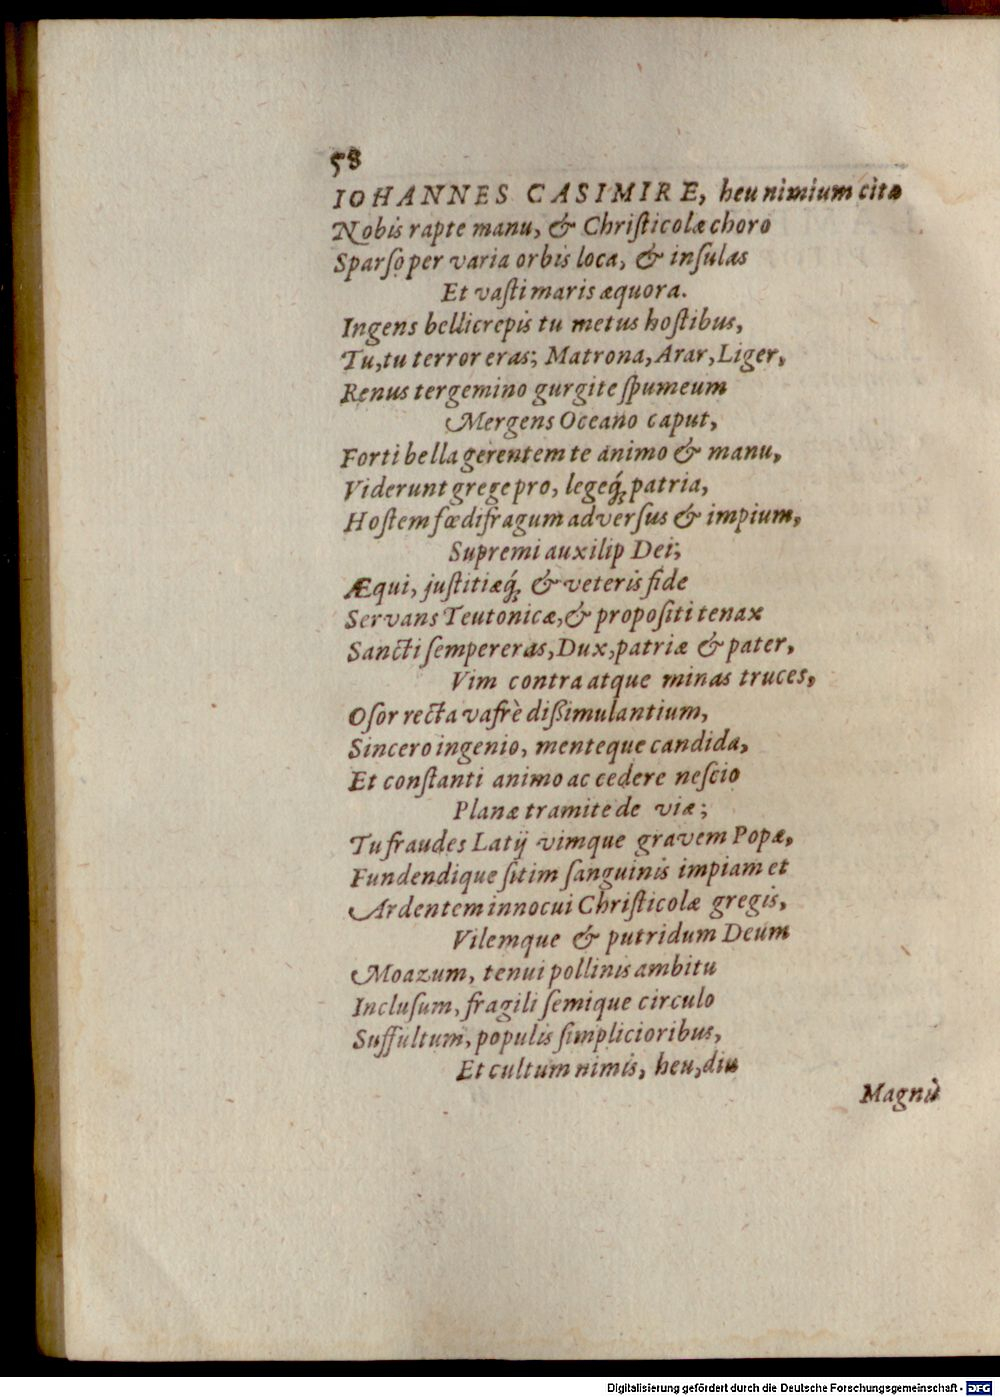 58
IOHANNES CASIMIRE, heu nimium cito
Nobis rapte manu, & Chriſticolæ choro
Sparſo per varia orbis loca, & inſulas
Et vaſti maris æquora.
Ingens bellicrepis tu metus hoſtibus,
Tu, tu terror eras; Matrona, Arar, Liger,
Renus tergemino gurgite ſpumeum
Mergens Oceano caput,
Forti bella gerentem te animo & manu,
Viderunt grege pro, legeq́; patria,
Hoſtem fœdifragum adverſus & impium,
Supremi auxilio Dei;
Æqui, juſtitiæq́; & veteris fide
Servans Teutonicæ, & propoſiti tenax
Sancti ſemper eras, Dux, patriæ & pater,
Vim contra atque minas truces,
Oſor recta vafrè diſſimulantium,
Sincero ingenio, menteque candida,
Et conſtanti animo ac cedere neſcio
Planæ tramite de viæ;
Tu fraudes Latij vimque gravem Popæ,
Fundendique ſitim ſanguinis impiam et
Ardentem innocui Chriſticolæ gregis,
Vilemque & putridum Deum
Moazum, tenui pollinis ambitu
Incluſum, fragili ſemique circulo
Suffultum, populis ſimplicioribus,
Et cultum nimis, heu, diu
Magnū
Digitalisierung gefördert durch die Deutsche Forschungsgemeinschaft - DFG